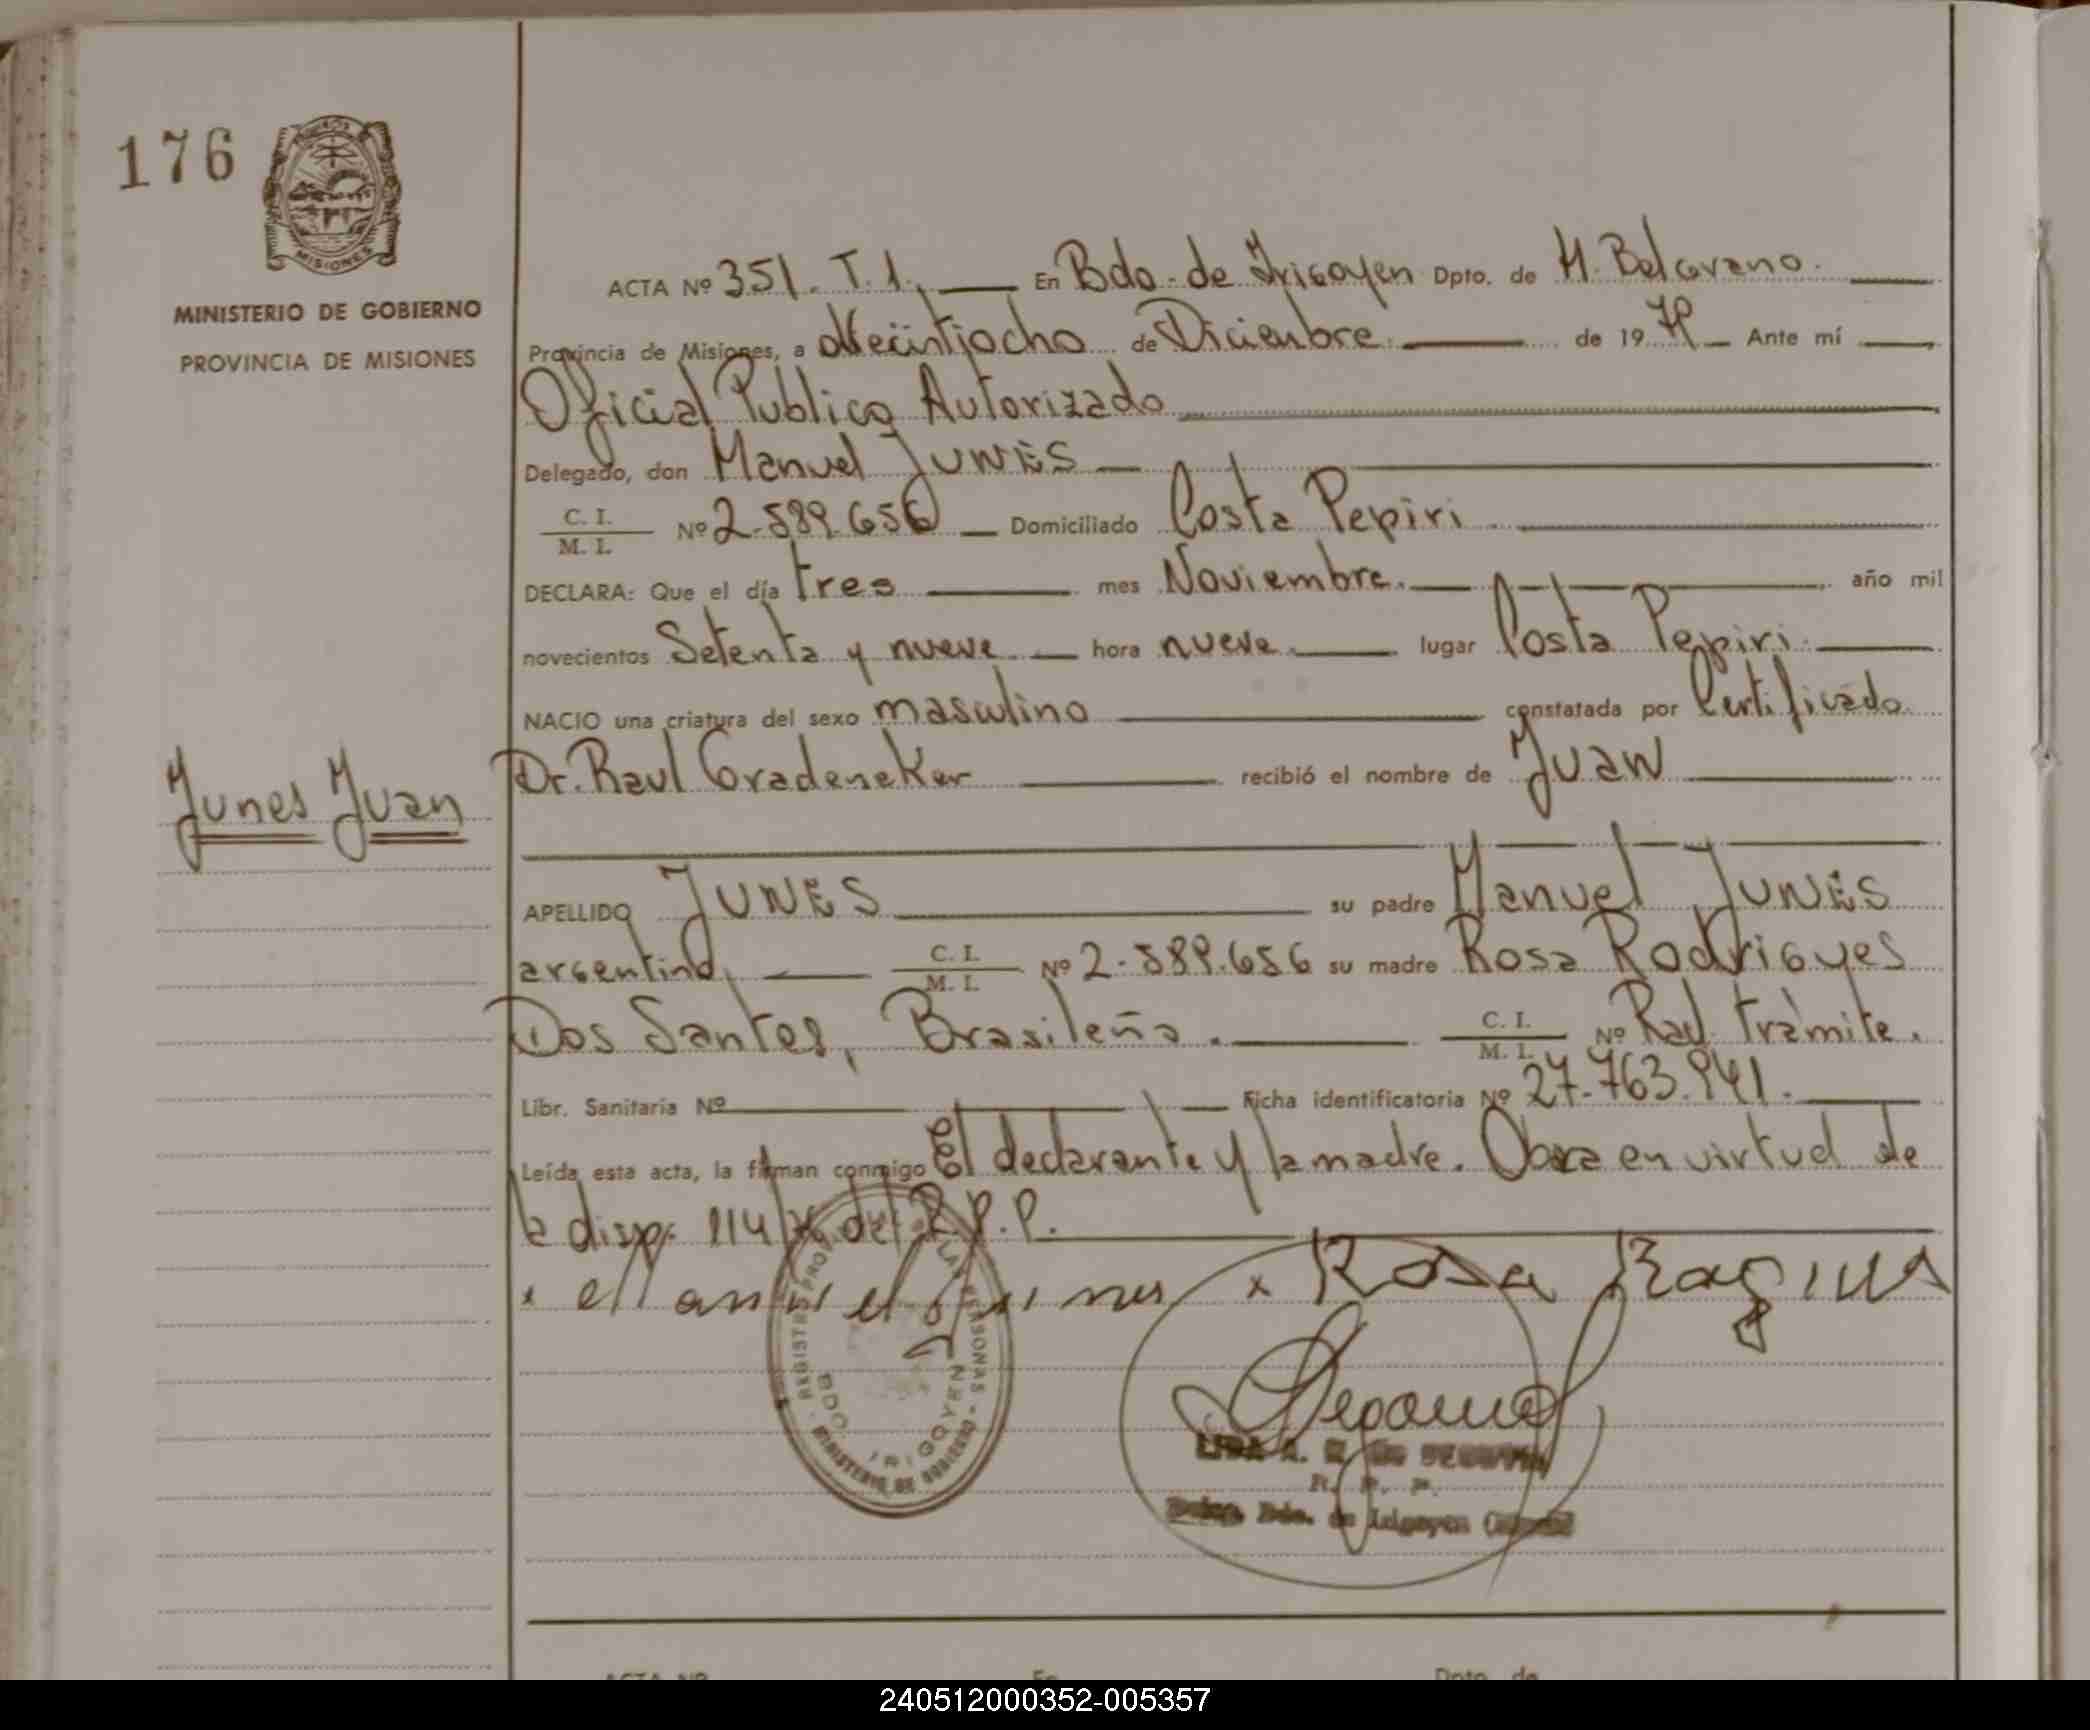 176
MISIONES
MINISTERIO DE GOBIERNO
PROVINCIA DE MISIONES
ACTA Nº 351. T. 1. En Bdo. de Irigoyen Dpto. de M. Belgrano.
Provincia de Misiones, a Vecintiocho de Diciembre de 19 79 Ante mí
Oficial Publico Autorizado
Delegado, don Manuel JUNES
C. I.
M. I. Nº 2.589.656 Domiciliado Costa Pepiri
DECLARA: Que el día tres mes Noviembre. año mil
novecientos Setenta y nueve hora nueve lugar Costa Pepiri.
NACIO una criatura del sexo masculino constatada por Certificado
Junes Juan
Dr. Raul Gradeneker recibió el nombre de Juan
APELLIDO JUNES su padre Manuel JUNES
argentino, C. I.
M. I. Nº 2.589.656 su madre Rosa Rodrigues
Dos Santos, Brasileña. C. I.
M. I. Nº Rad. Tràmite.
Libr. Sanitaria Nº Ficha identificatoria Nº 27.763.941.
Leída esta acta, la firman conmigo El declarante y la madre. Obra en virtud de
la disp. 114/76 del R.P.P.
x Manuel Junes x Rosa
REGISTRO PROV. LAS PERSONAS
BDO. IRIGOYEN
MINISTERIO DE GOBIERNO
LIDA A.
R. P. P.
Bdo. de Irigoyen
ACTA Nº En Dpto. de
240512000352-005357